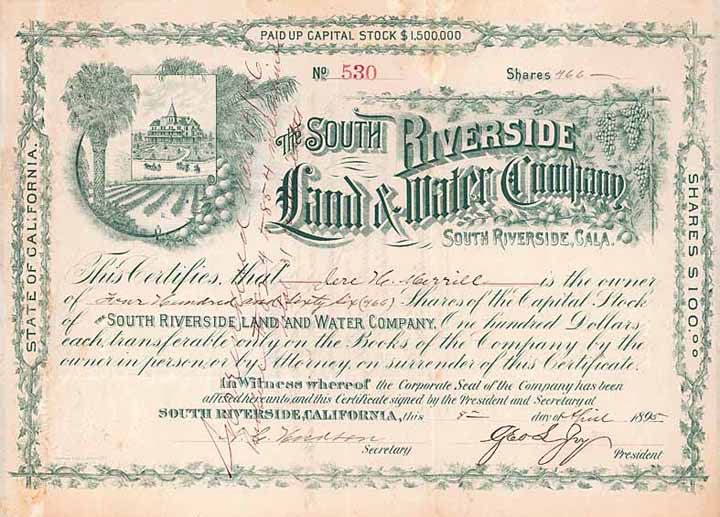 PAID UP CAPITAL STOCK $1,500,000
No 530
Shares 466
The SOUTH RIVERSIDE
Land & Water Company
SOUTH RIVERSIDE, CALA.
STATE OF CALIFORNIA.
SHARES $100.00
This Certifies, that Jere H. Merrill is the owner
of Four Hundred and Sixty Six (466) Shares of the Capital Stock
of THE SOUTH RIVERSIDE LAND AND WATER COMPANY. One hundred Dollars
each, transferable only on the Books of the Company by the
owner in person or by Attorney, on surrender of this Certificate.
In Witness whereof the Corporate Seal of the Company has been
affixed hereunto, and this Certificate signed by the President and Secretary at
SOUTH RIVERSIDE, CALIFORNIA, this 8 day of April 1895
Geo L Joy
Secretary
President